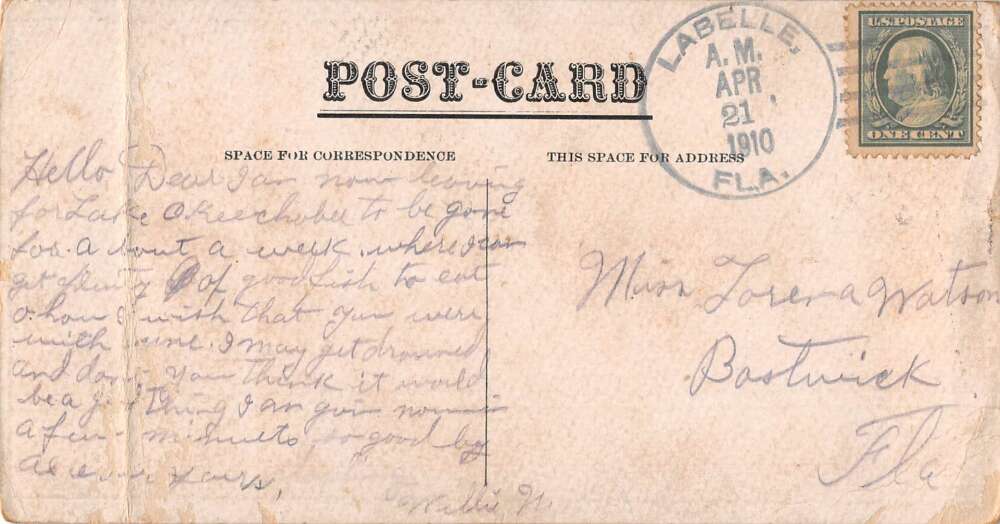 POST-CARD
LABELLE,
A.M.
APR
21
1910
FLA.
U.S. POSTAGE
ONE CENT
SPACE FOR CORRESPONDENCE
THIS SPACE FOR ADDRESS
Hello Dear I am now leaving
for Lake Okeechobee to be gone
for a bout a week where I can
get plenty of good fish to eat
o how I wish that you were
with me. I may get drowned
and don't you think it would
be a good thing I am goin now in
a few minuets so good by
as ever yours,
Willie N.
Miss Lorena Watson
Bostwick
Fla